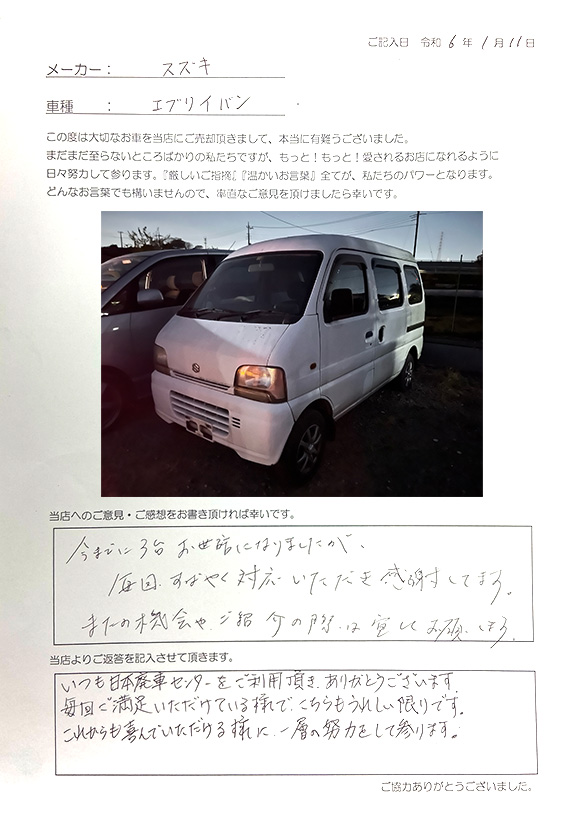 ご記入日 令和 6 年 1 月 11 日
メーカー： スズキ
車種 ： エブリイバン
この度は大切なお車を当店にご売却頂きまして、本当に有難うございました。
まだまだ至らないところばかりの私たちですが、もっと！もっと！愛されるお店になれるように
日々努力して参ります。『厳しいご指摘』『温かいお言葉』全てが、私たちのパワーとなります。
どんなお言葉でも構いませんので、率直なご意見を頂けましたら幸いです。
当店へのご意見・ご感想をお書き頂ければ幸いです。
今までに3台 お世話になりましたが、
毎回、すばやく対応いただき感謝してます。
またの機会や、ご紹介の際は宜しくお願いします。
当店よりご返答を記入させて頂きます。
いつも日本廃車センターをご利用頂き、ありがとうございます。
毎回ご満足いただけている様で、こちらもうれしい限りです。
これからも喜んでいただける様に、一層の努力をして参ります。
ご協力ありがとうございました。